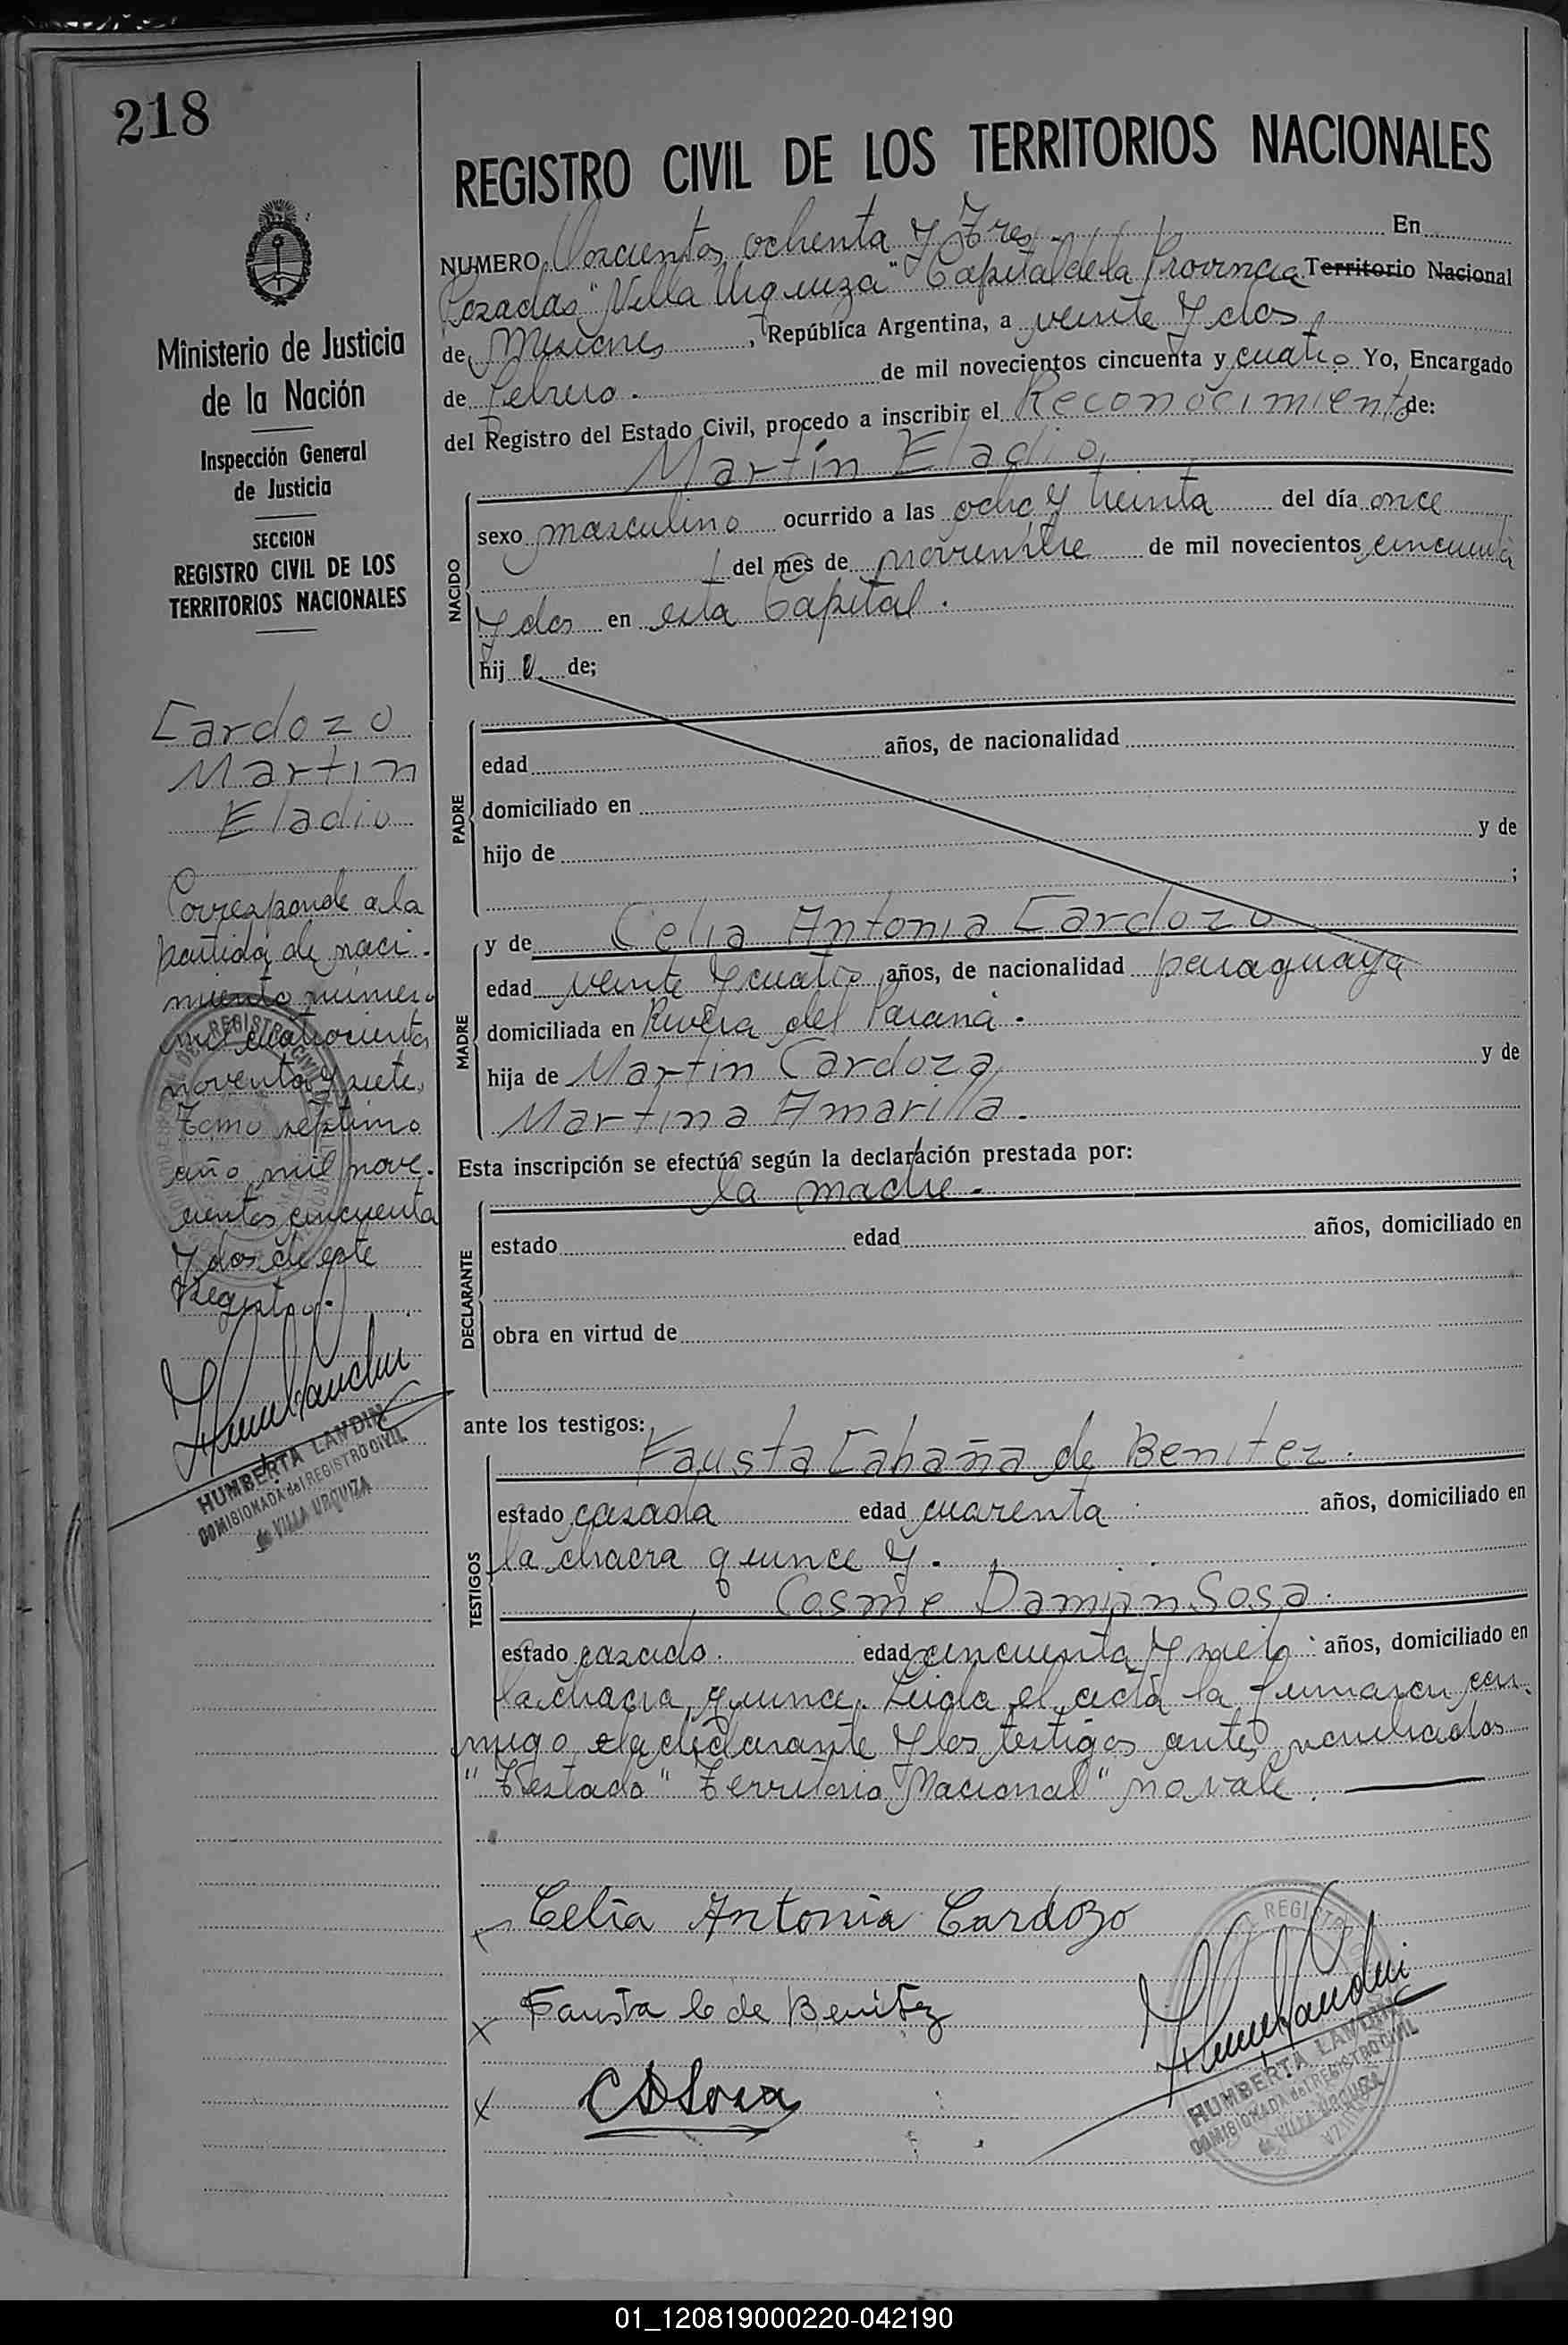 218
REGISTRO CIVIL DE LOS TERRITORIOS NACIONALES
Ministerio de Justicia
de la Nación
Inspección General
de Justicia
SECCION
REGISTRO CIVIL DE LOS
TERRITORIOS NACIONALES
Cardozo
Martin
Eladio
Corresponde a la
partida de naci-
miento numero
mil cuatrocientos
noventa y siete,
Tomo septimo
año mil nove-
cientos cincuenta
y dos de este
Registro.
HUMBERTA LANDIN
COMISIONADA del REGISTRO CIVIL
de VILLA URQUIZA
NUMERO Doscientos ochenta y Tres En
Posadas "Villa Urquiza" Capital de la Provincia Territorio Nacional
de Misiones, República Argentina, a veinte y dos
de Febrero. de mil novecientos cincuenta y cuatro Yo, Encargado
del Registro del Estado Civil, procedo a inscribir el Reconocimiento de:
Martín Eladio,
NACIDO
sexo masculino ocurrido a las ocho y treinta del día once
del mes de noviembre de mil novecientos cincuenta
y dos en esta Capital.
hij o de;
PADRE
edad años, de nacionalidad
domiciliado en
hijo de y de
;
MADRE
y de Celia Antonia Cardozo
edad veinte y cuatro años, de nacionalidad paraguaya
domiciliada en Rivera del Paraná.
hija de Martin Cardozo y de
Martina Amarilla.
Esta inscripción se efectúa según la declaración prestada por:
la madre.
DECLARANTE
estado edad años, domiciliado en
obra en virtud de
ante los testigos:
TESTIGOS
Fausta Cabaña de Benitez.
estado casada edad cuarenta años, domiciliado en
la chacra quince y.
Cosme Damian Sosa.
estado casado. edad cincuenta y años, domiciliado en
la chacra quince. Leida el acta la firmaron con-
migo la declarante y los testigos antes nombrados
"Testado" Territorio Nacional" no vale.
x Celia Antonia Cardozo
x Fausta C de Benitez
x CDSosa
HUMBERTA LANDIN
COMISIONADA del REGISTRO CIVIL
de VILLA URQUIZA
01_120819000220-042190